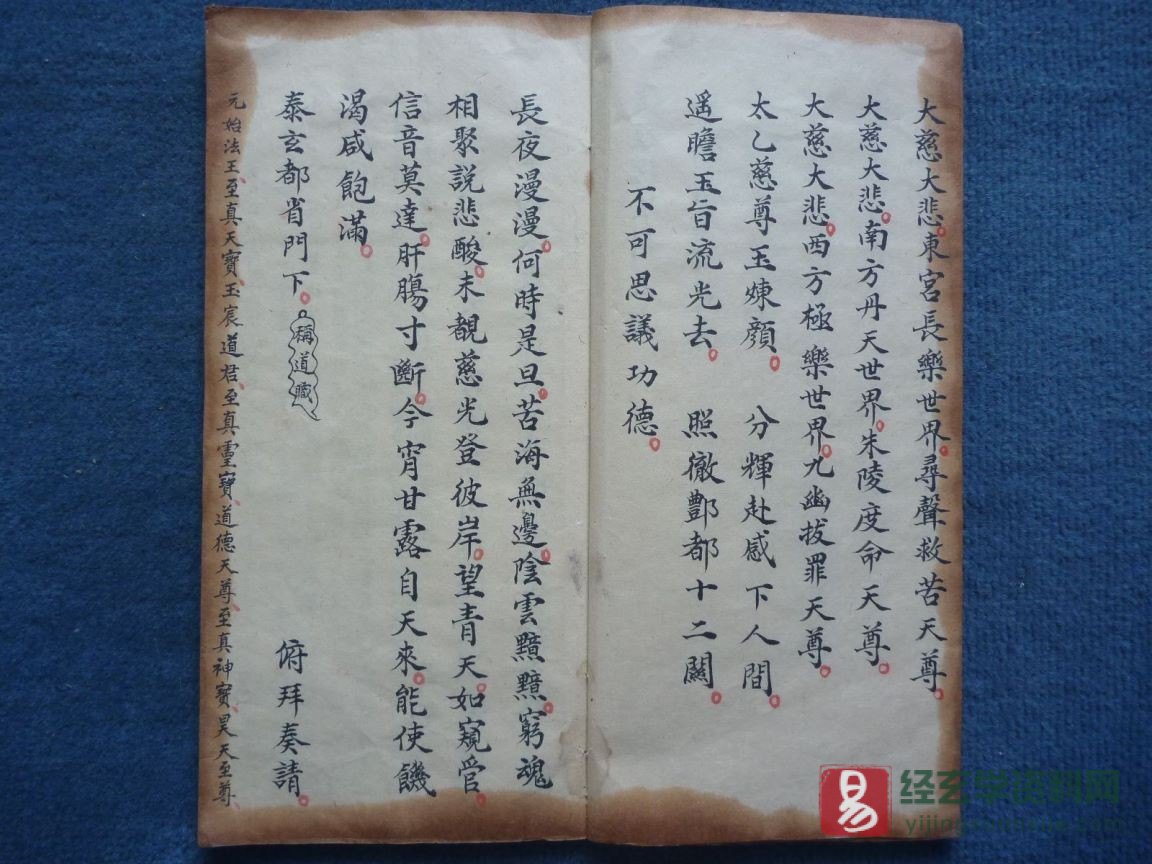 大慈大悲。東宮長樂世界。尋聲救苦天尊。
大慈大悲。南方丹天世界。朱陵度命天尊。
大慈大悲。西方極樂世界。九幽拔罪天尊。
太乙慈尊玉煉顔。 分輝赴感下人間。
遥瞻玉旨流光去。 照徹酆都十二闕。
不可思議功德。
長夜漫漫。何時是旦。苦海無邊。陰雲黯黯。窮魂
相聚說悲酸。未覩慈光登彼岸。望青天。如窺管。
信音莫達。肝膓寸斷。今宵甘露自天來。能使饑
渴咸飽滿。
泰玄都省門下。稱道職 俯拜奏請。
元始法王、至真天寶、玉宸道君、至真靈寶、道德天尊、至真神寶、昊天至尊、
易
经玄学资料网